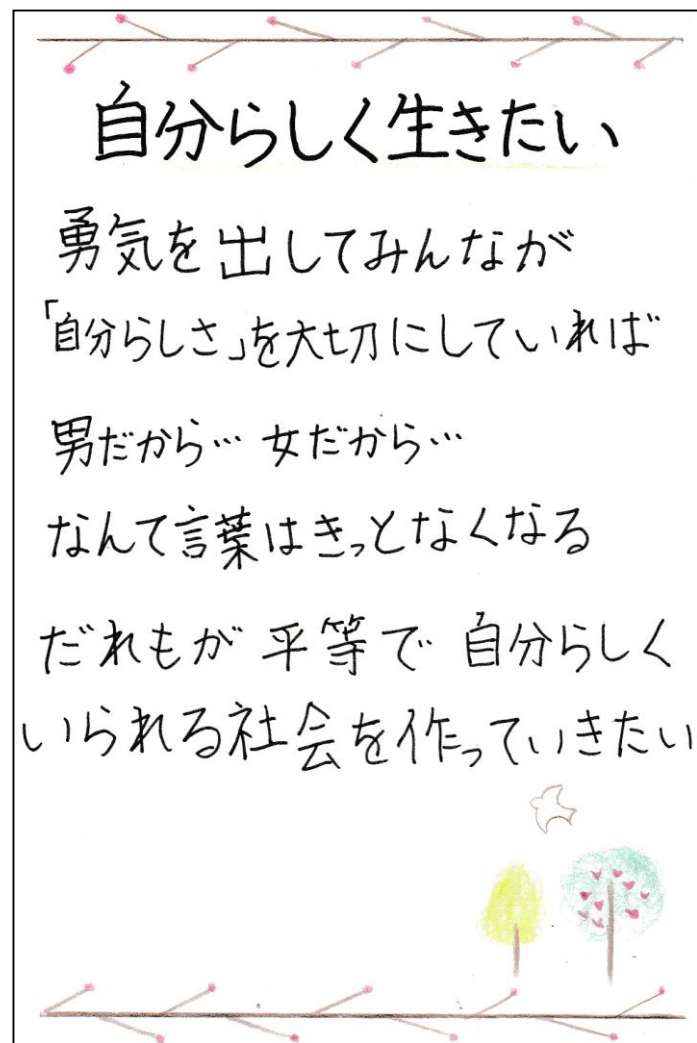 自分らしく生きたい
勇気を出してみんなが
「自分らしさ」を大切にしていれば
男だから… 女だから…
なんて言葉はきっとなくなる
だれもが 平等で 自分らしく
いられる社会を作っていきたい